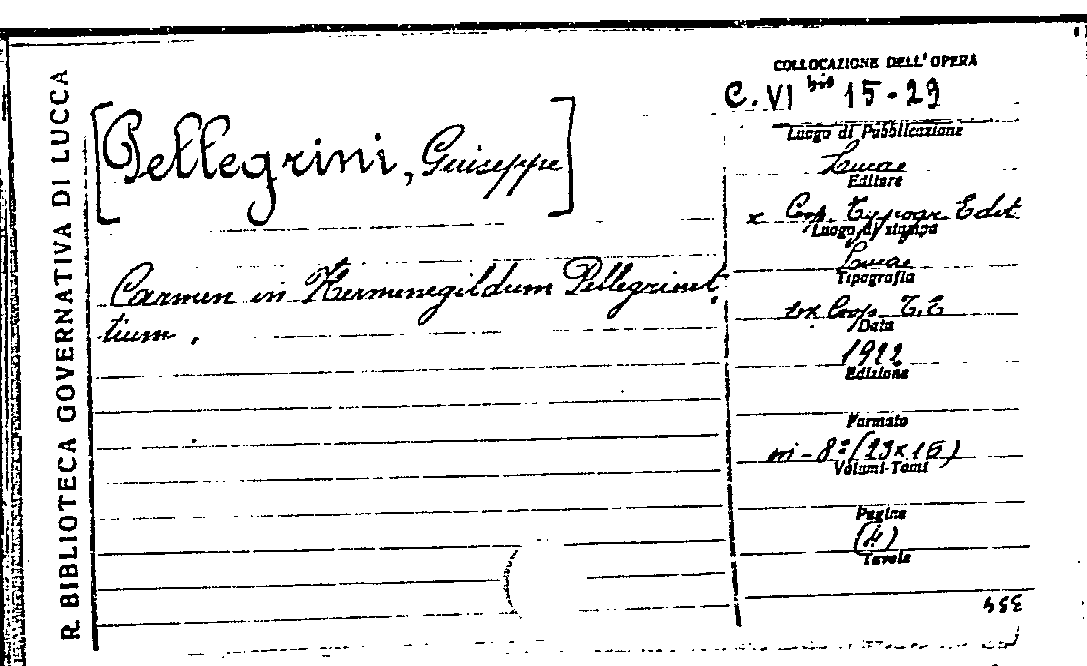 R. BIBLIOTECA GOVERNATIVA DI LUCCA
[Pellegrini, Giuseppe]
Carmen in Hermenegildum Pellegrinet
tium.
COLLOCAZIONE DELL'OPERA
C. VI bis 15-29
Luogo di Pubblicazione
Lucae
Editore
x Coop. Typogr. Edit
Luogo di stampa
Lucae
Tipografia
ex Coop. T. E
Data
1922
Edizione
Formato
in-8º (23x15)
Volumi-Tomi
Pagine
(4)
Tavole